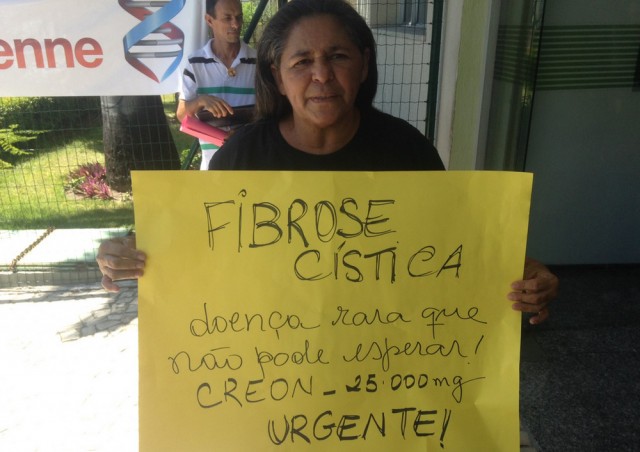 enne
FIBROSE
CÍSTICA
doença rara que
não pode esperar!
CREON - 25.000mg
URGENTE!